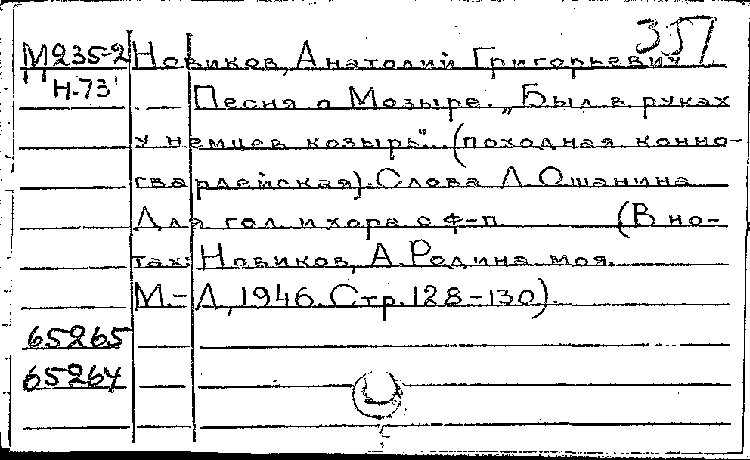 357
М235-2 Новиков, Анатолий Григорьевич
Н-73 Песня о Мозыре. „Был в руках
у немцев козырь”... (походная конно-
гвардейская). Слова Л. Ошанина
Для гол. и хора с ф-п. (В но-
тах: Новиков, А. Родина моя.
М.-Л., 1946. Стр. 128-130).
65265
65264